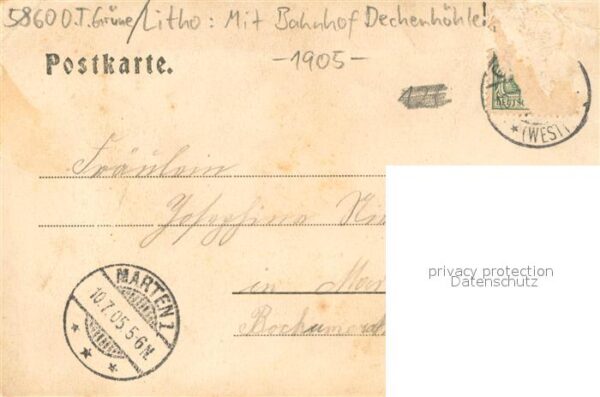 5860 O.T. Grüne/Litho: Mit Bahnhof Dechenhöhle!
Postkarte.
-1905-
(WEST)
Fräulein
Josephine
in
MARTEN 1
10.7.05 5-6N.
privacy protection
Datenschutz